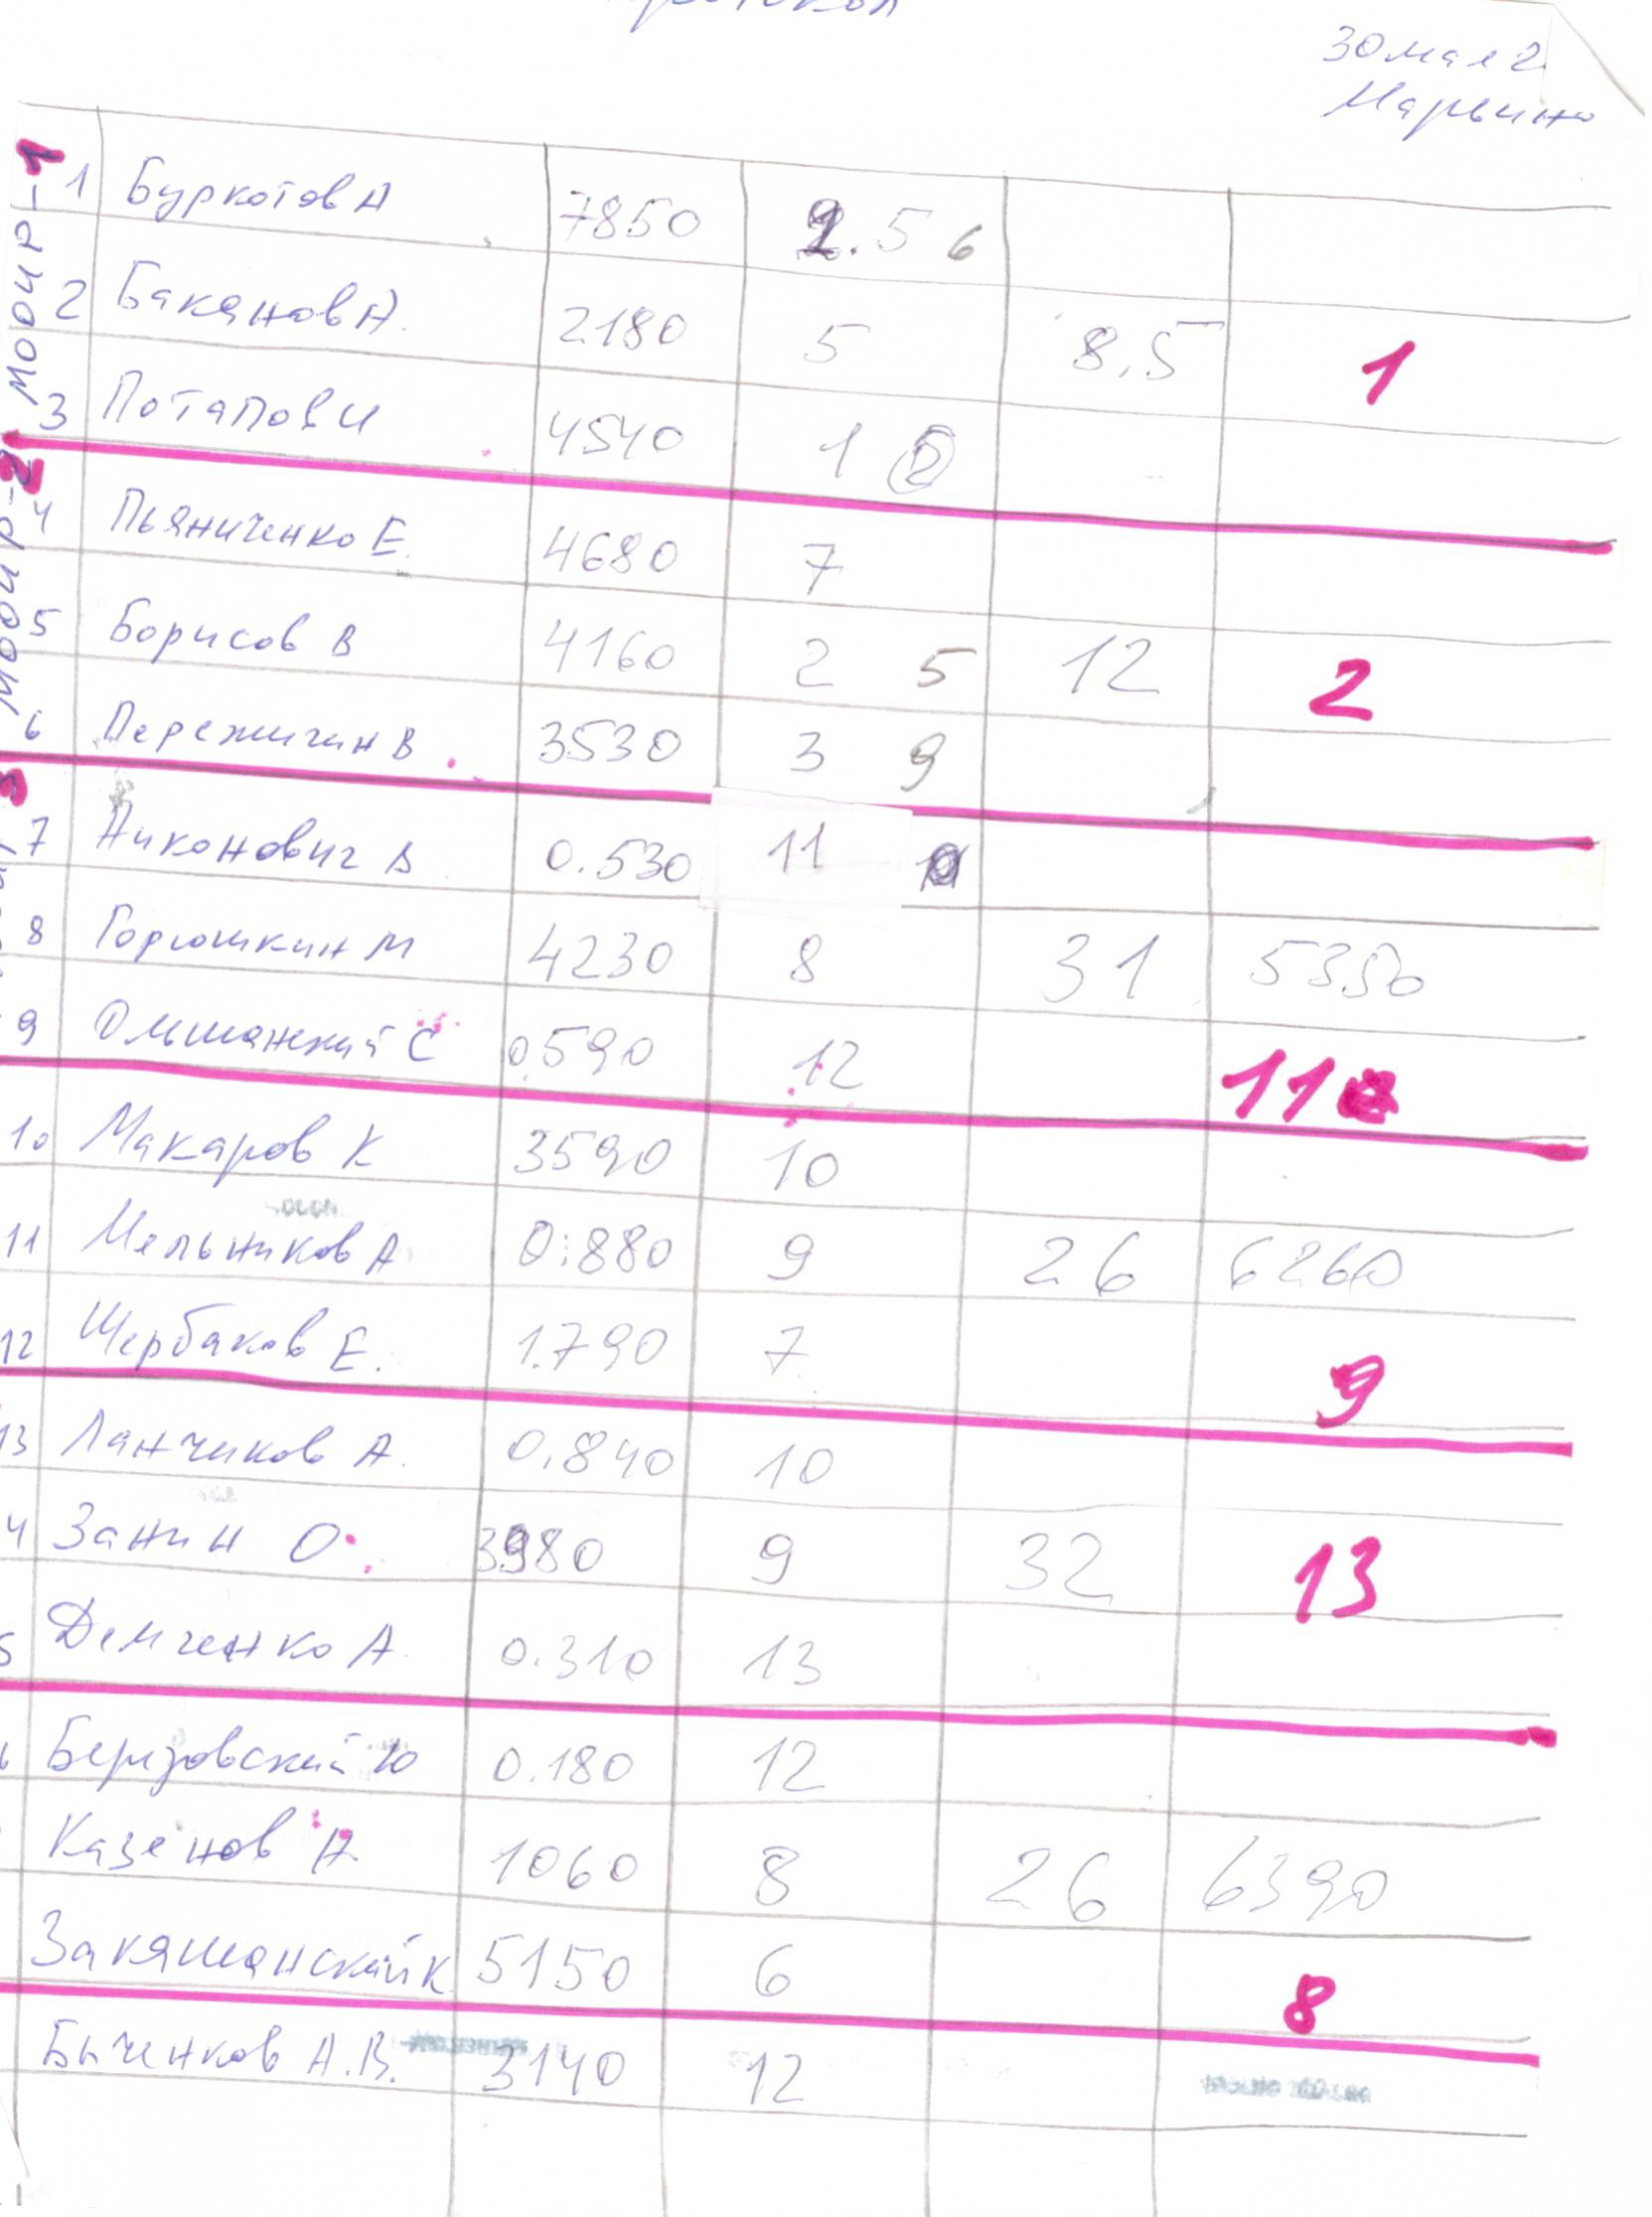 30 мая 2
Марьино
1 Буркотов А 7850 2.5 6
2 Баканов А. 2180 5 8,5 1
3 Потапов И 4540 1 2
4 Пьяниченко Е. 4680 7
5 Борисов В 4160 2 5 12 2
6 Пережигин В. 3530 3 9
7 Никонович В 0.530 11
8 Горюшкин М 4230 8 31 5350
9 Ольшанский С 0.590 12 11
10 Макаров К 3590 10
11 Мельников А 0.880 9 26 6260
12 Щербаков Е. 1.790 7 9
13 Ланчиков А. 0.840 10
4 Занин О. 3980 9 32 13
5 Демченко А. 0.310 13
Березовский Ю 0.180 12
Казенов А. 1060 8 26 6390
К 5150 6 8
Быченков А.В. 3140 12
МООиР-1
МООиР-2